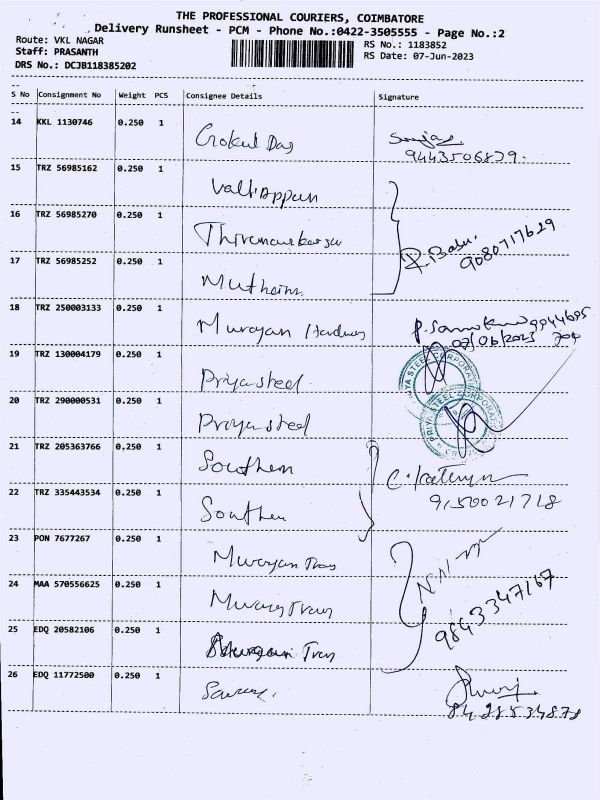 THE PROFESSIONAL COURIERS, COIMBATORE
Delivery Runsheet - PCM - Phone No.:0422-3505555 - Page No.:2
Route: VKL NAGAR
Staff: PRASANTH
DRS No.: DCJB118385202
RS No.: 1183852
RS Date: 07-Jun-2023
S No Consignment No Weight PCS Consignee Details Signature
14 KKL 1130746 0.250 1 Gokul Das
9443506879.
15 TRZ 56985162 0.250 1 Valliappan
16 TRZ 56985270 0.250 1
R. Babu.
9080717629
17 TRZ 56985252 0.250 1
18 TRZ 250003133 0.250 1 Murugan
07/06/2023
19 TRZ 130004179 0.250 1 Priya steel
PRIYA STEEL CORPORATION
20 TRZ 290000531 0.250 1 Priya steel
PRIYA STEEL CORPORATION
21 TRZ 205363766 0.250 1 Southern
22 TRZ 335443534 0.250 1 Southern
9150021718
23 PON 7677267 0.250 1 Murugan Trans
24 MAA 570556625 0.250 1 Murugan Trans
9843347167
25 EDQ 20582106 0.250 1 Murugan Trans
26 EDQ 11772500 0.250 1
8428534878